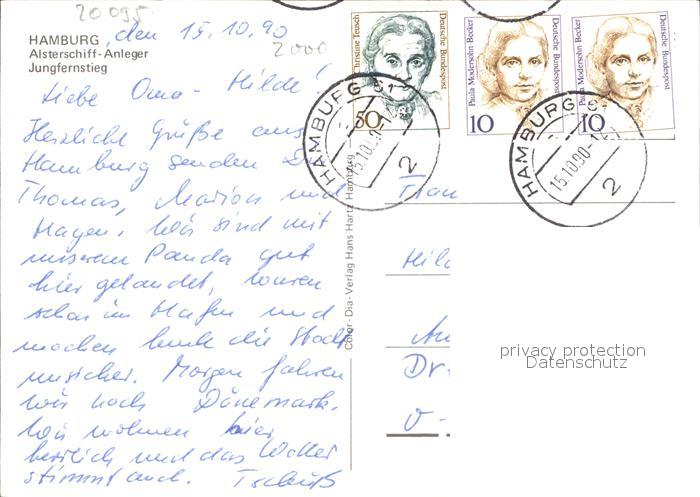 20095
HAMBURG, den 15.10.90
2000
Alsterschiff-Anleger
Jungfernstieg
Liebe Oma - Hilde!
Herzliche Grüße aus
Hamburg senden Dir
Thomas, Marion und
Hagen. Wir sind mit
unserem Panda gut
hier gelandet, waren
schon im Hafen und
machen heute die Stadt
unsicher. Morgen fahren
wir nach Dänemark.
Wir wohnen hier
herrlich und das Wetter
stimmt auch. Tschüß
Color-Dia-Verlag Hans Hartz Hamburg
Christine Teusch
Deutsche Bundespost
50
Paula Modersohn-Becker
Deutsche Bundespost
10
Paula Modersohn-Becker
Deutsche Bundespost
10
HAMBURG
15.10.90
2
HAMBURG
15.10.90-1
2
Frau
Hild
Dr.
O-
privacy protection
Datenschutz